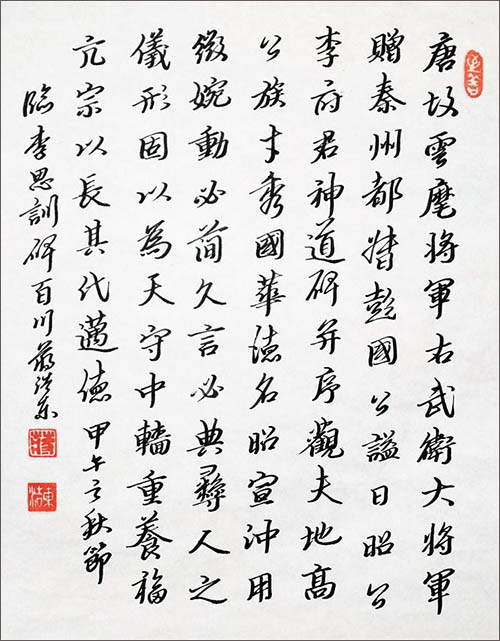 唐故雲麾將軍右武衛大將軍
贈秦州都督彭國公謚曰昭公
李府君神道碑并序觀夫地高
公族才秀國華德名昭宣沖用
微婉動必簡久言必典彝人之
儀形固以為天守中轖重養福
亢宗以長其代邁德 甲午秋節
臨李思訓碑百川